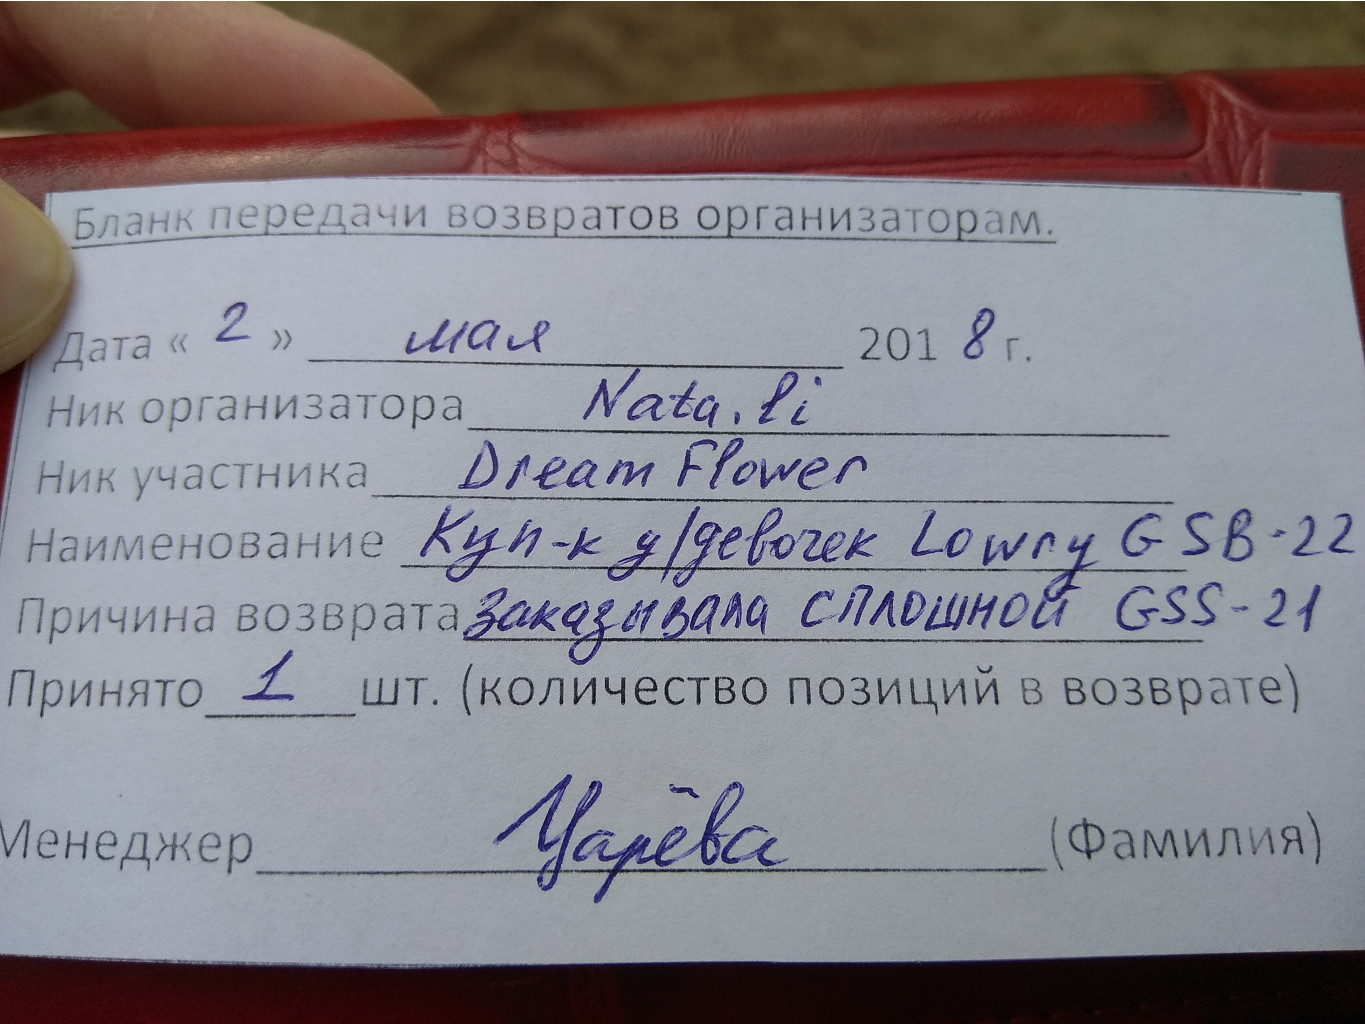 Бланк передачи возвратов организаторам.
Дата « 2 » мая 2018 г.
Ник организатора Nata.li
Ник участника Dream Flower
Наименование Куп-к д/девочек Lowry GSB-22
Причина возврата Заказывала сплошной GSS-21
Принято 1 шт. (количество позиций в возврате)
Менеджер Царёва (Фамилия)